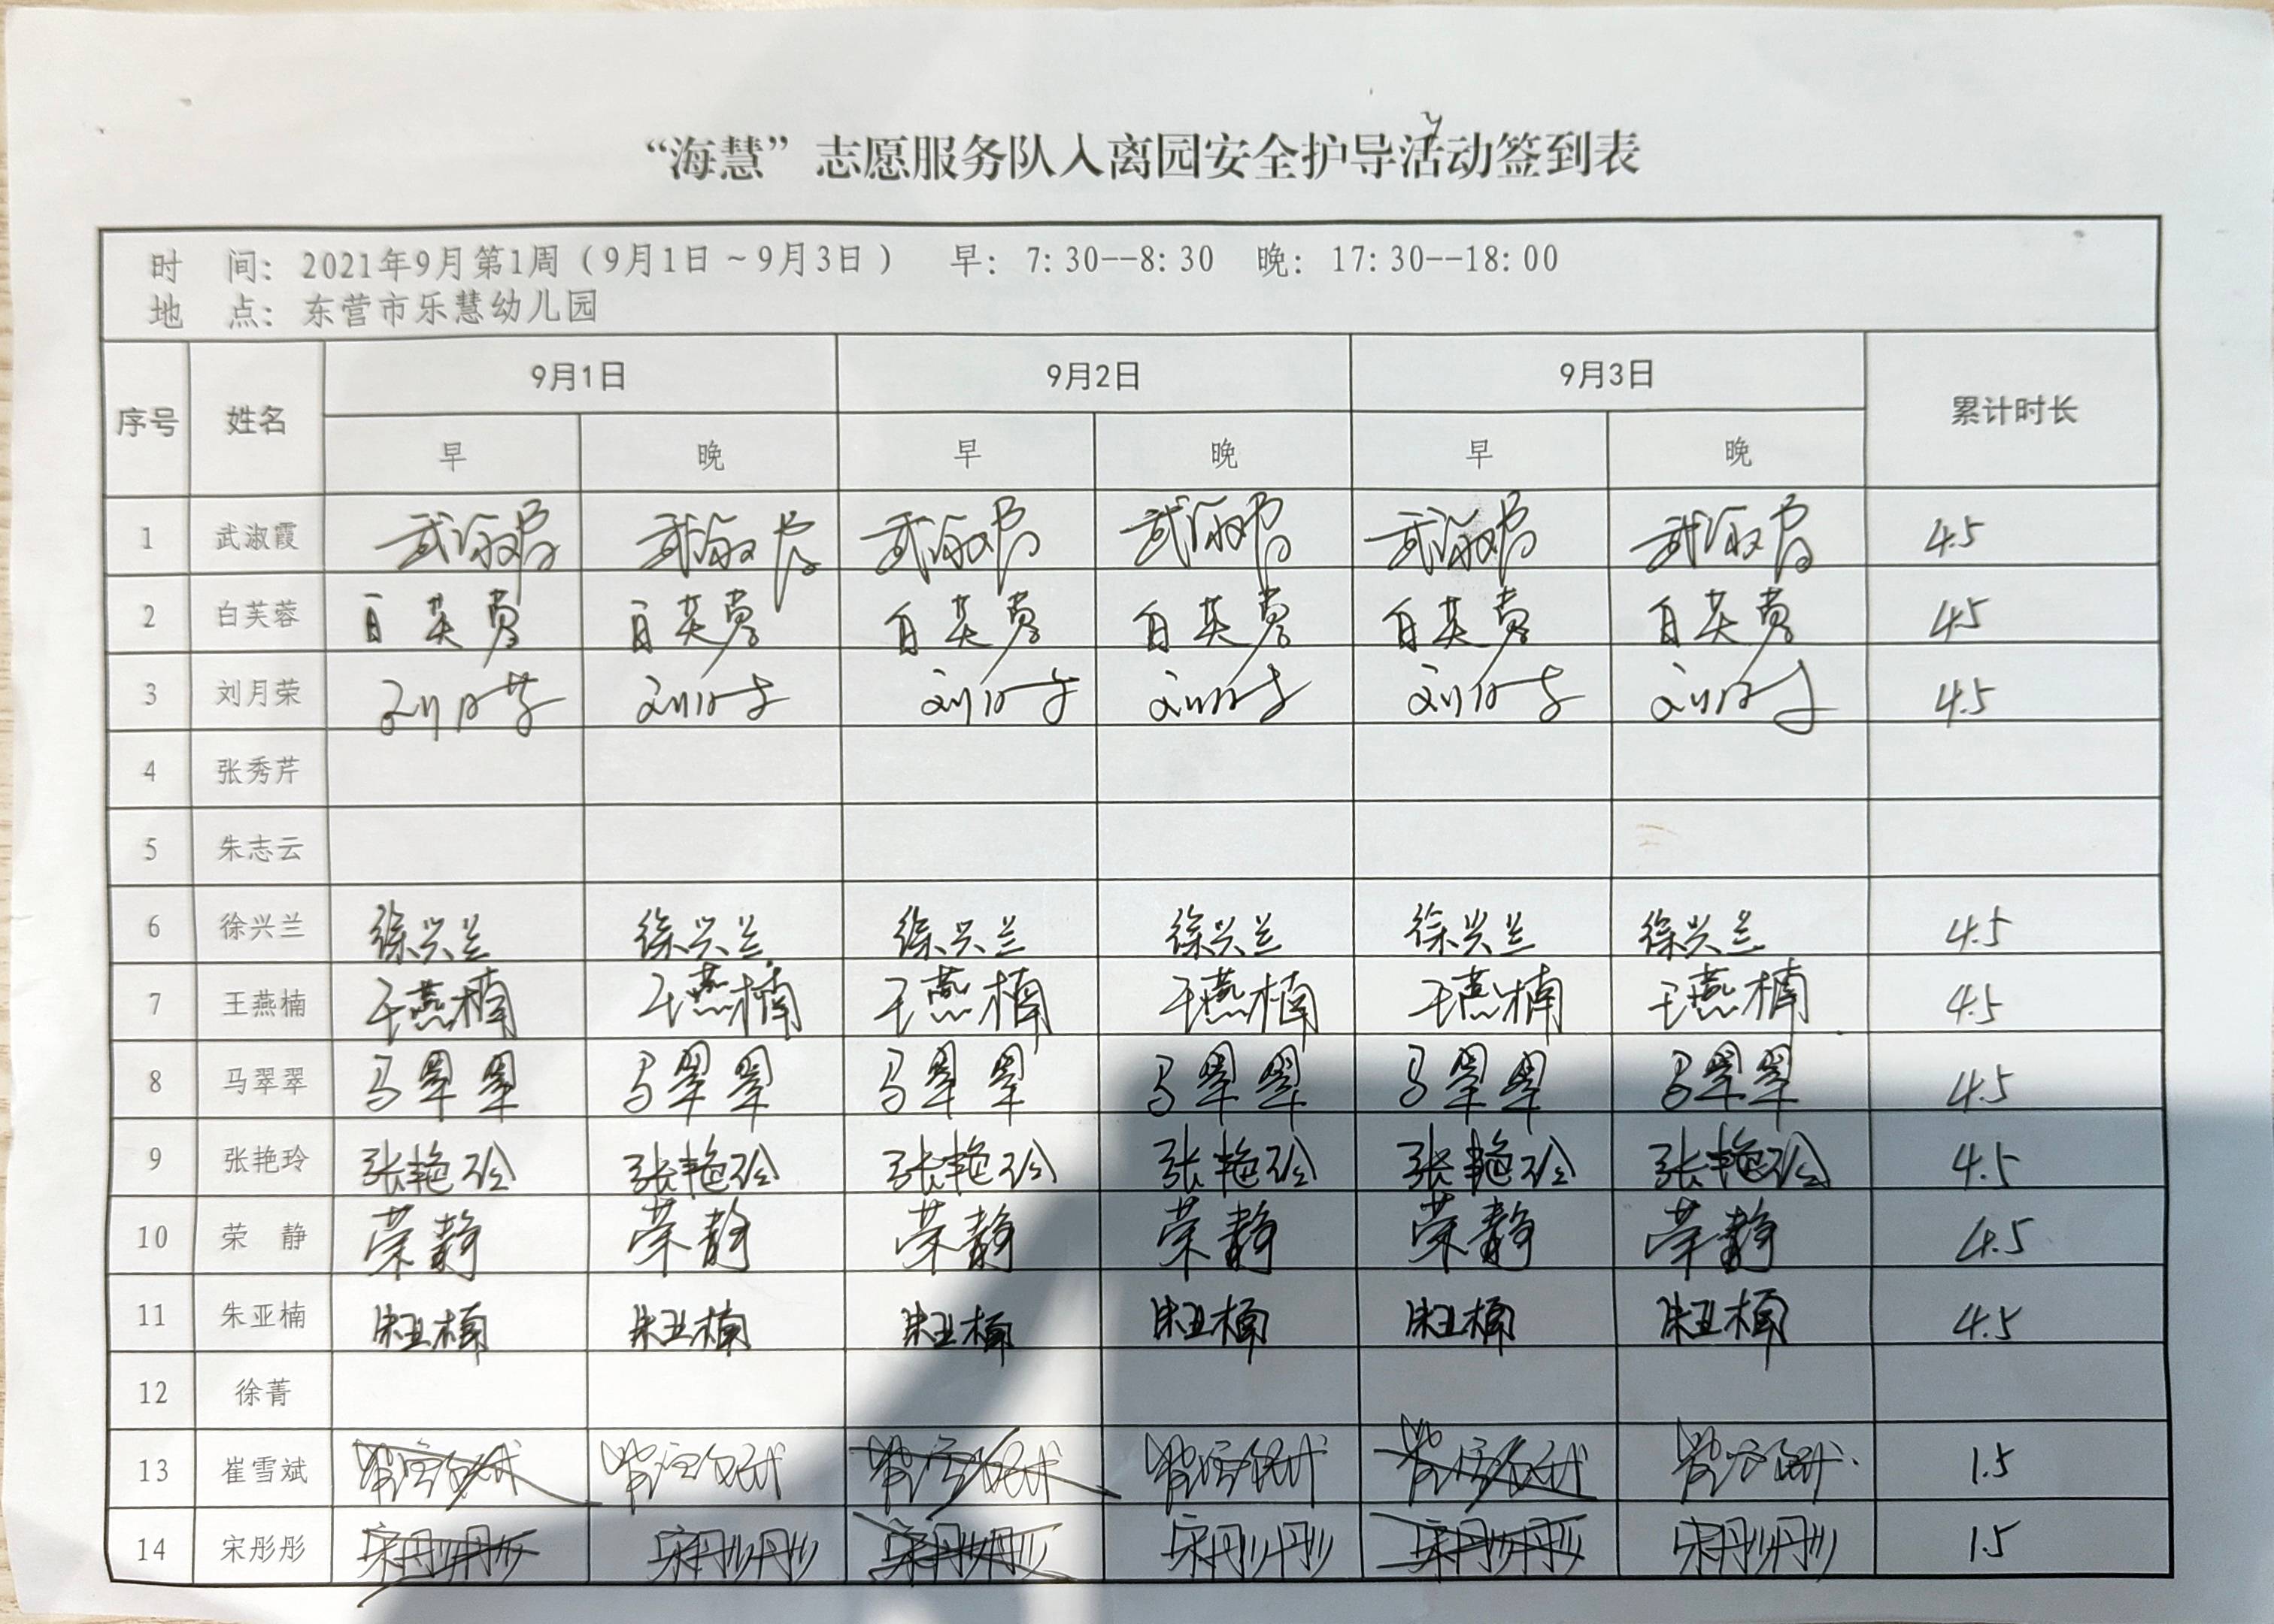 “海慧”志愿服务队入离园安全护导活动签到表
时 间：2021年9月第1周（9月1日～9月3日） 早：7:30--8:30 晚：17:30--18:00
地 点：东营市乐慧幼儿园
序号 姓名 9月1日 9月2日 9月3日 累计时长
早 晚 早 晚 早 晚
1 武淑霞 武淑霞 武淑霞 武淑霞 武淑霞 武淑霞 武淑霞 4.5
2 白芙蓉 白芙蓉 白芙蓉 白芙蓉 白芙蓉 白芙蓉 白芙蓉 4.5
3 刘月荣 刘月荣 刘月荣 刘月荣 刘月荣 刘月荣 刘月荣 4.5
4 张秀芹
5 朱志云
6 徐兴兰 徐兴兰 徐兴兰 徐兴兰 徐兴兰 徐兴兰 徐兴兰 4.5
7 王燕楠 王燕楠 王燕楠 王燕楠 王燕楠 王燕楠 王燕楠 4.5
8 马翠翠 马翠翠 马翠翠 马翠翠 马翠翠 马翠翠 马翠翠 4.5
9 张艳玲 张艳玲 张艳玲 张艳玲 张艳玲 张艳玲 张艳玲 4.5
10 荣 静 荣静 荣静 荣静 荣静 荣静 荣静 4.5
11 朱亚楠 朱亚楠 朱亚楠 朱亚楠 朱亚楠 朱亚楠 朱亚楠 4.5
12 徐菁
13 崔雪斌 崔雪斌 崔雪斌 崔雪斌 崔雪斌 崔雪斌 崔雪斌 1.5
14 宋彤彤 宋彤彤 宋彤彤 宋彤彤 宋彤彤 宋彤彤 宋彤彤 1.5